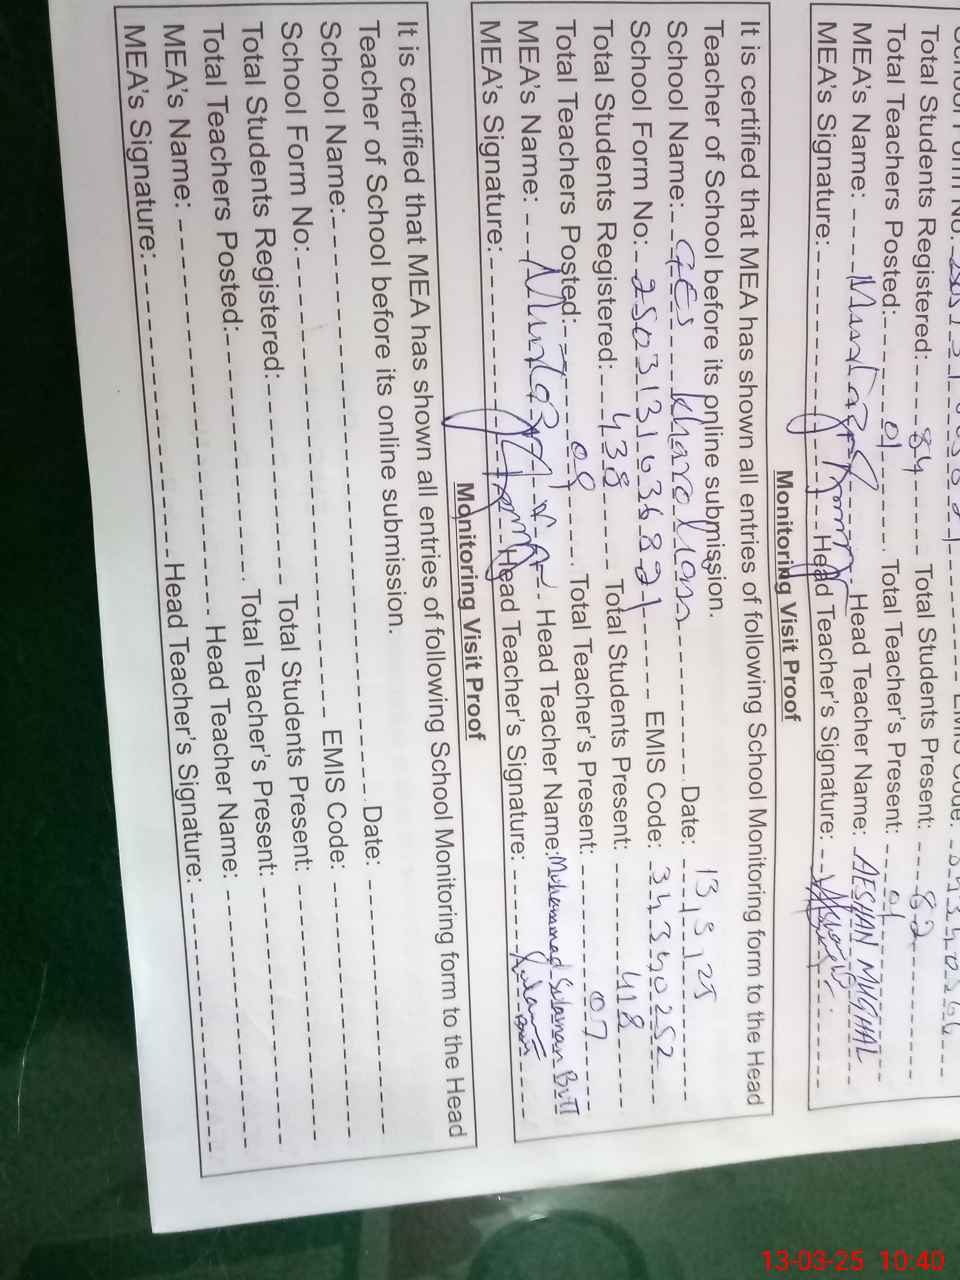 School Form No:
Total Students Registered: 84 Total Students Present: 82
Total Teachers Posted: 01 Total Teacher's Present: 01
MEA's Name: Head Teacher Name: AESHAN MUGHAL
MEA's Signature: Head Teacher's Signature:
Monitoring Visit Proof
It is certified that MEA has shown all entries of following School Monitoring form to the Head
Teacher of School before its online submission.
School Name: GES Date: 13/3/25
School Form No: EMIS Code: 34340252
Total Students Registered: 438 Total Students Present: 418
Total Teachers Posted: 09 Total Teacher's Present: 07
MEA's Name: Head Teacher Name: Mohammad Sulaman Butt
MEA's Signature: Head Teacher's Signature:
Monitoring Visit Proof
It is certified that MEA has shown all entries of following School Monitoring form to the Head
Teacher of School before its online submission.
School Name: Date:
School Form No: EMIS Code:
Total Students Registered: Total Students Present:
Total Teachers Posted: Total Teacher's Present:
MEA's Name: Head Teacher Name:
MEA's Signature: Head Teacher's Signature:
13-03-25 10:40